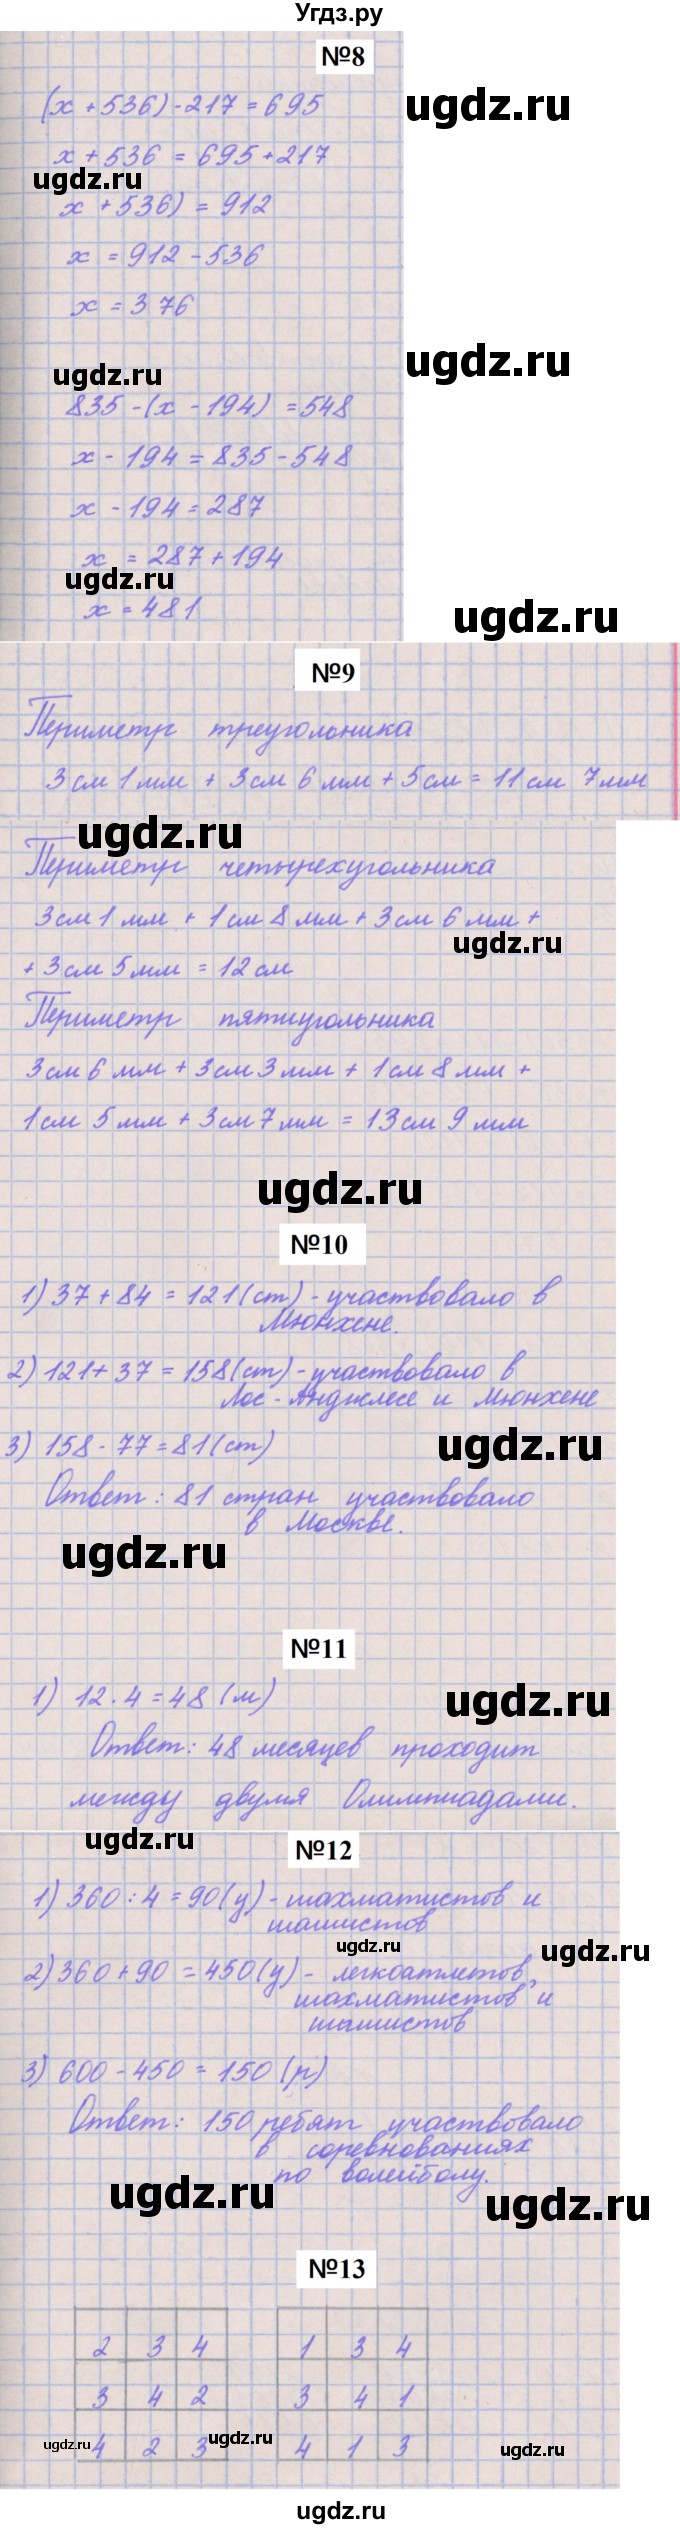 Угдз.ру
№8
ugdz.ru
(x + 536) - 217 = 695
x + 536 = 695 + 217
ugdz.ru
x + 536) = 912
x = 912 - 536
x = 376
ugdz.ru
ugdz.ru
835 - (x - 194) = 548
x - 194 = 835 - 548
x - 194 = 287
x = 287 + 194
ugdz.ru
x = 481
ugdz.ru
№9
Периметр треугольника
3см 1мм + 3см 6мм + 5см = 11см 7мм
ugdz.ru
Периметр четырехугольника
3см 1мм + 1см 8мм + 3см 6мм +
ugdz.ru
+ 3см 5мм = 12см
Периметр пятиугольника
3см 6мм + 3см 3мм + 1см 8мм +
1см 5мм + 3см 7мм = 13см 9мм
ugdz.ru
№10
1) 37 + 84 = 121 (ст) - участвовало в
Мюнхене.
2) 121 + 37 = 158 (ст) - участвовало в
Лос - Анджлесе и Мюнхене
3) 158 - 77 = 81 (ст)
ugdz.ru
Ответ: 81 стран участвовало
в Москве.
ugdz.ru
№11
1) 12 · 4 = 48 (м)
ugdz.ru
Ответ: 48 месяцев проходит
между двумя Олимпиадами.
ugdz.ru
№12
1) 360 : 4 = 90 (у) - шахматистов и
шашистов
ugdz.ru
ugdz.ru
2) 360 + 90 = 450 (у) - легкоатлетов,
шахматистов и
шашистов
3) 600 - 450 = 150 (р)
Ответ: 150 ребят участвовало
в соревнованиях
по волейболу.
ugdz.ru
ugdz.ru
№13
2 3 4 1 3 4
3 4 2 3 4 1
ugdz.ru
ugdz.ru
ugdz.ru
4 2 3 4 1 3
ugdz.ru